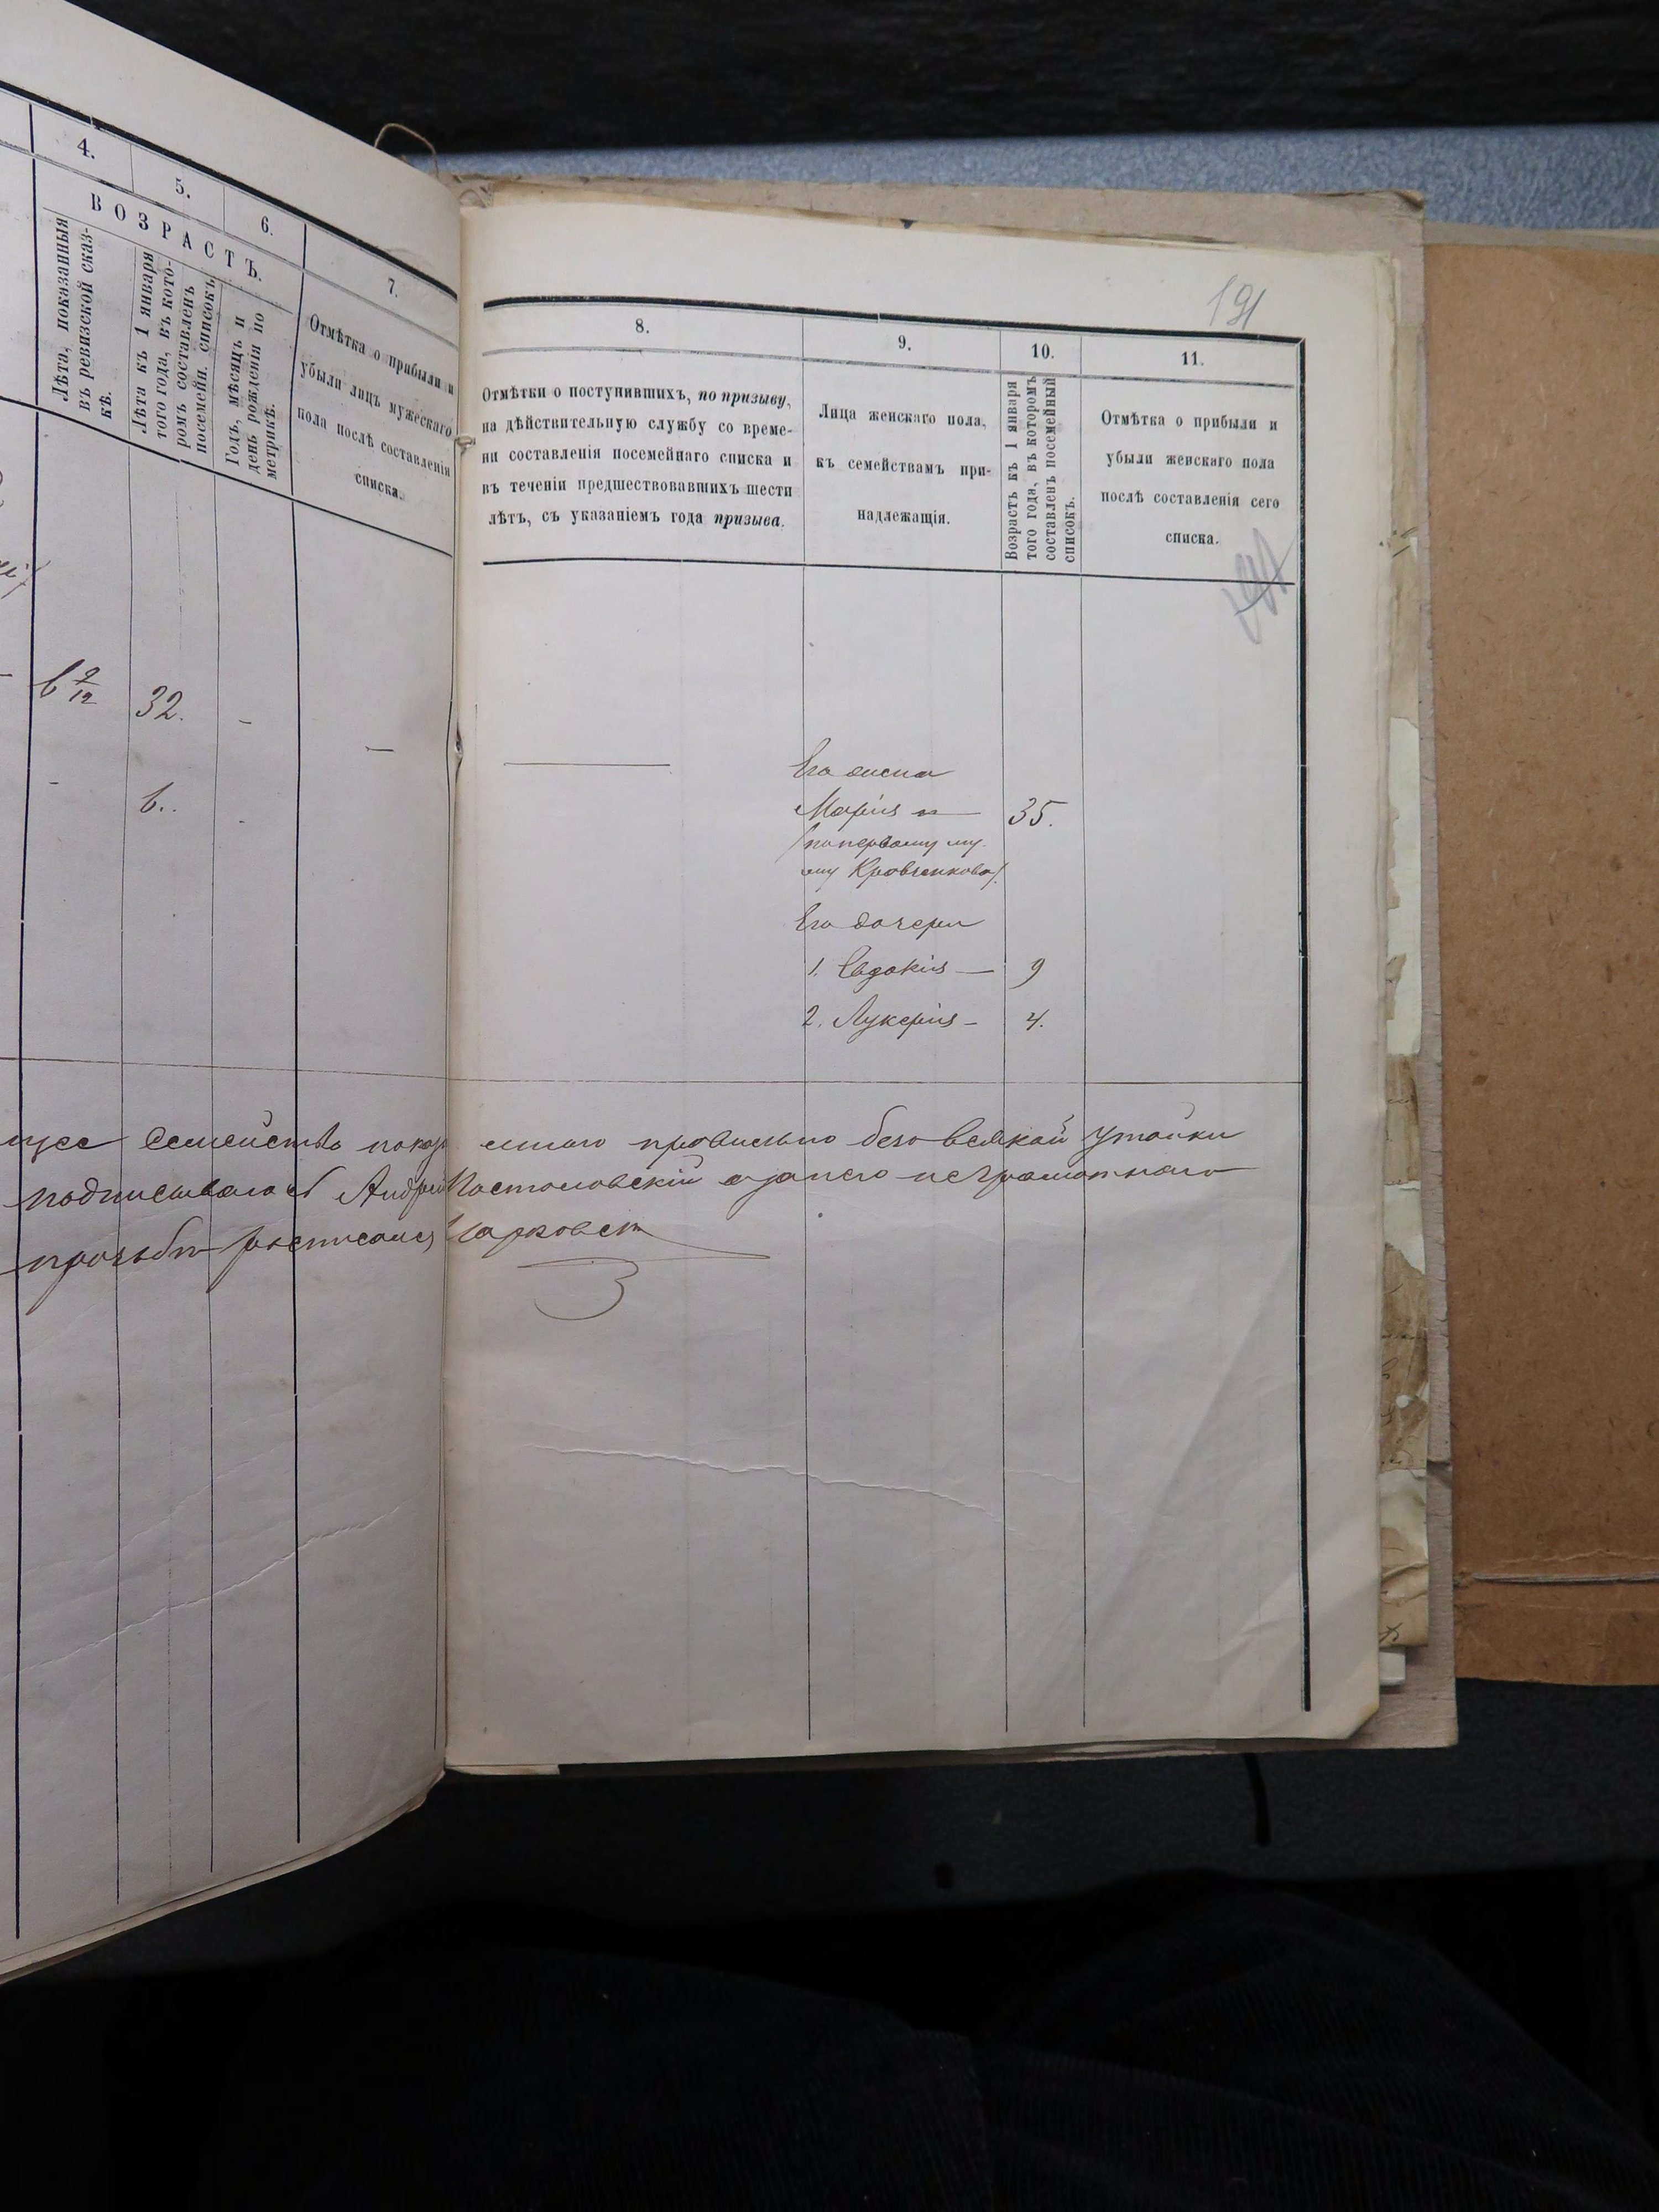 4.
5.
6.
7.
ВОЗРАСТЪ.
Лѣта, показанныя
въ ревизской сказ-
кѣ.
Лѣта къ 1 января
того года, въ кото-
ромъ составленъ
посемейн. списокъ
Годъ, мѣсяцъ и
день рожденія по
метрикѣ.
Отмѣтка о прибыли и
убыли лицъ мужескаго
пола послѣ составленія
списка.
6 2/12
32.
6..
191
8.
9.
10.
11.
Отмѣтки о поступившихъ, по призыву,
на дѣйствительную службу со време-
ни составленія посемейнаго списка и
въ теченіи предшествовавшихъ шести
лѣтъ, съ указаніемъ года призыва.
Лица женскаго пола,
къ семействамъ при-
надлежащія.
Возрастъ къ 1 января
того года, въ которомъ
составленъ посемейный
списокъ.
Отмѣтка о прибыли и
убыли женскаго пола
послѣ составленія сего
списка.
Его жена
Марія — 35.
(по первому му-
жу Кровченкова).
Его дочери
1. Евдокія — 9
2. Лукерія - 4.
семейство правильно безо всякой утайки
подписывался Андрей Постоловскій а за него неграмотнаго
прозьби росписался